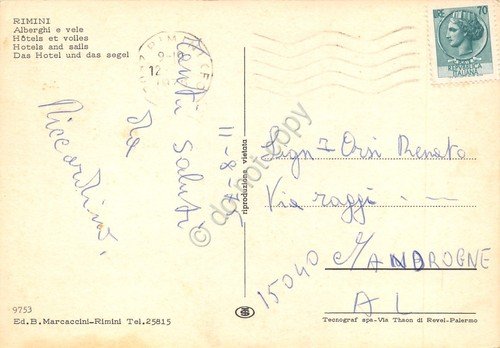 RIMINI
Alberghi e vele
Hôtels et voiles
Hotels and sails
Das Hotel und das segel
RIMINI
12
LIRE 70
REPUBBLICA ITALIANA
Tanti Saluti
da
Riccardino.
11-8-75
riproduzione vietata
Sign Orsi Renato
Via raggi
15040 MANDROGNE
AL
9753
Ed.B.Marcaccini-Rimini Tel.25815
Tecnograf spa-Via Thaon di Revel-Palermo